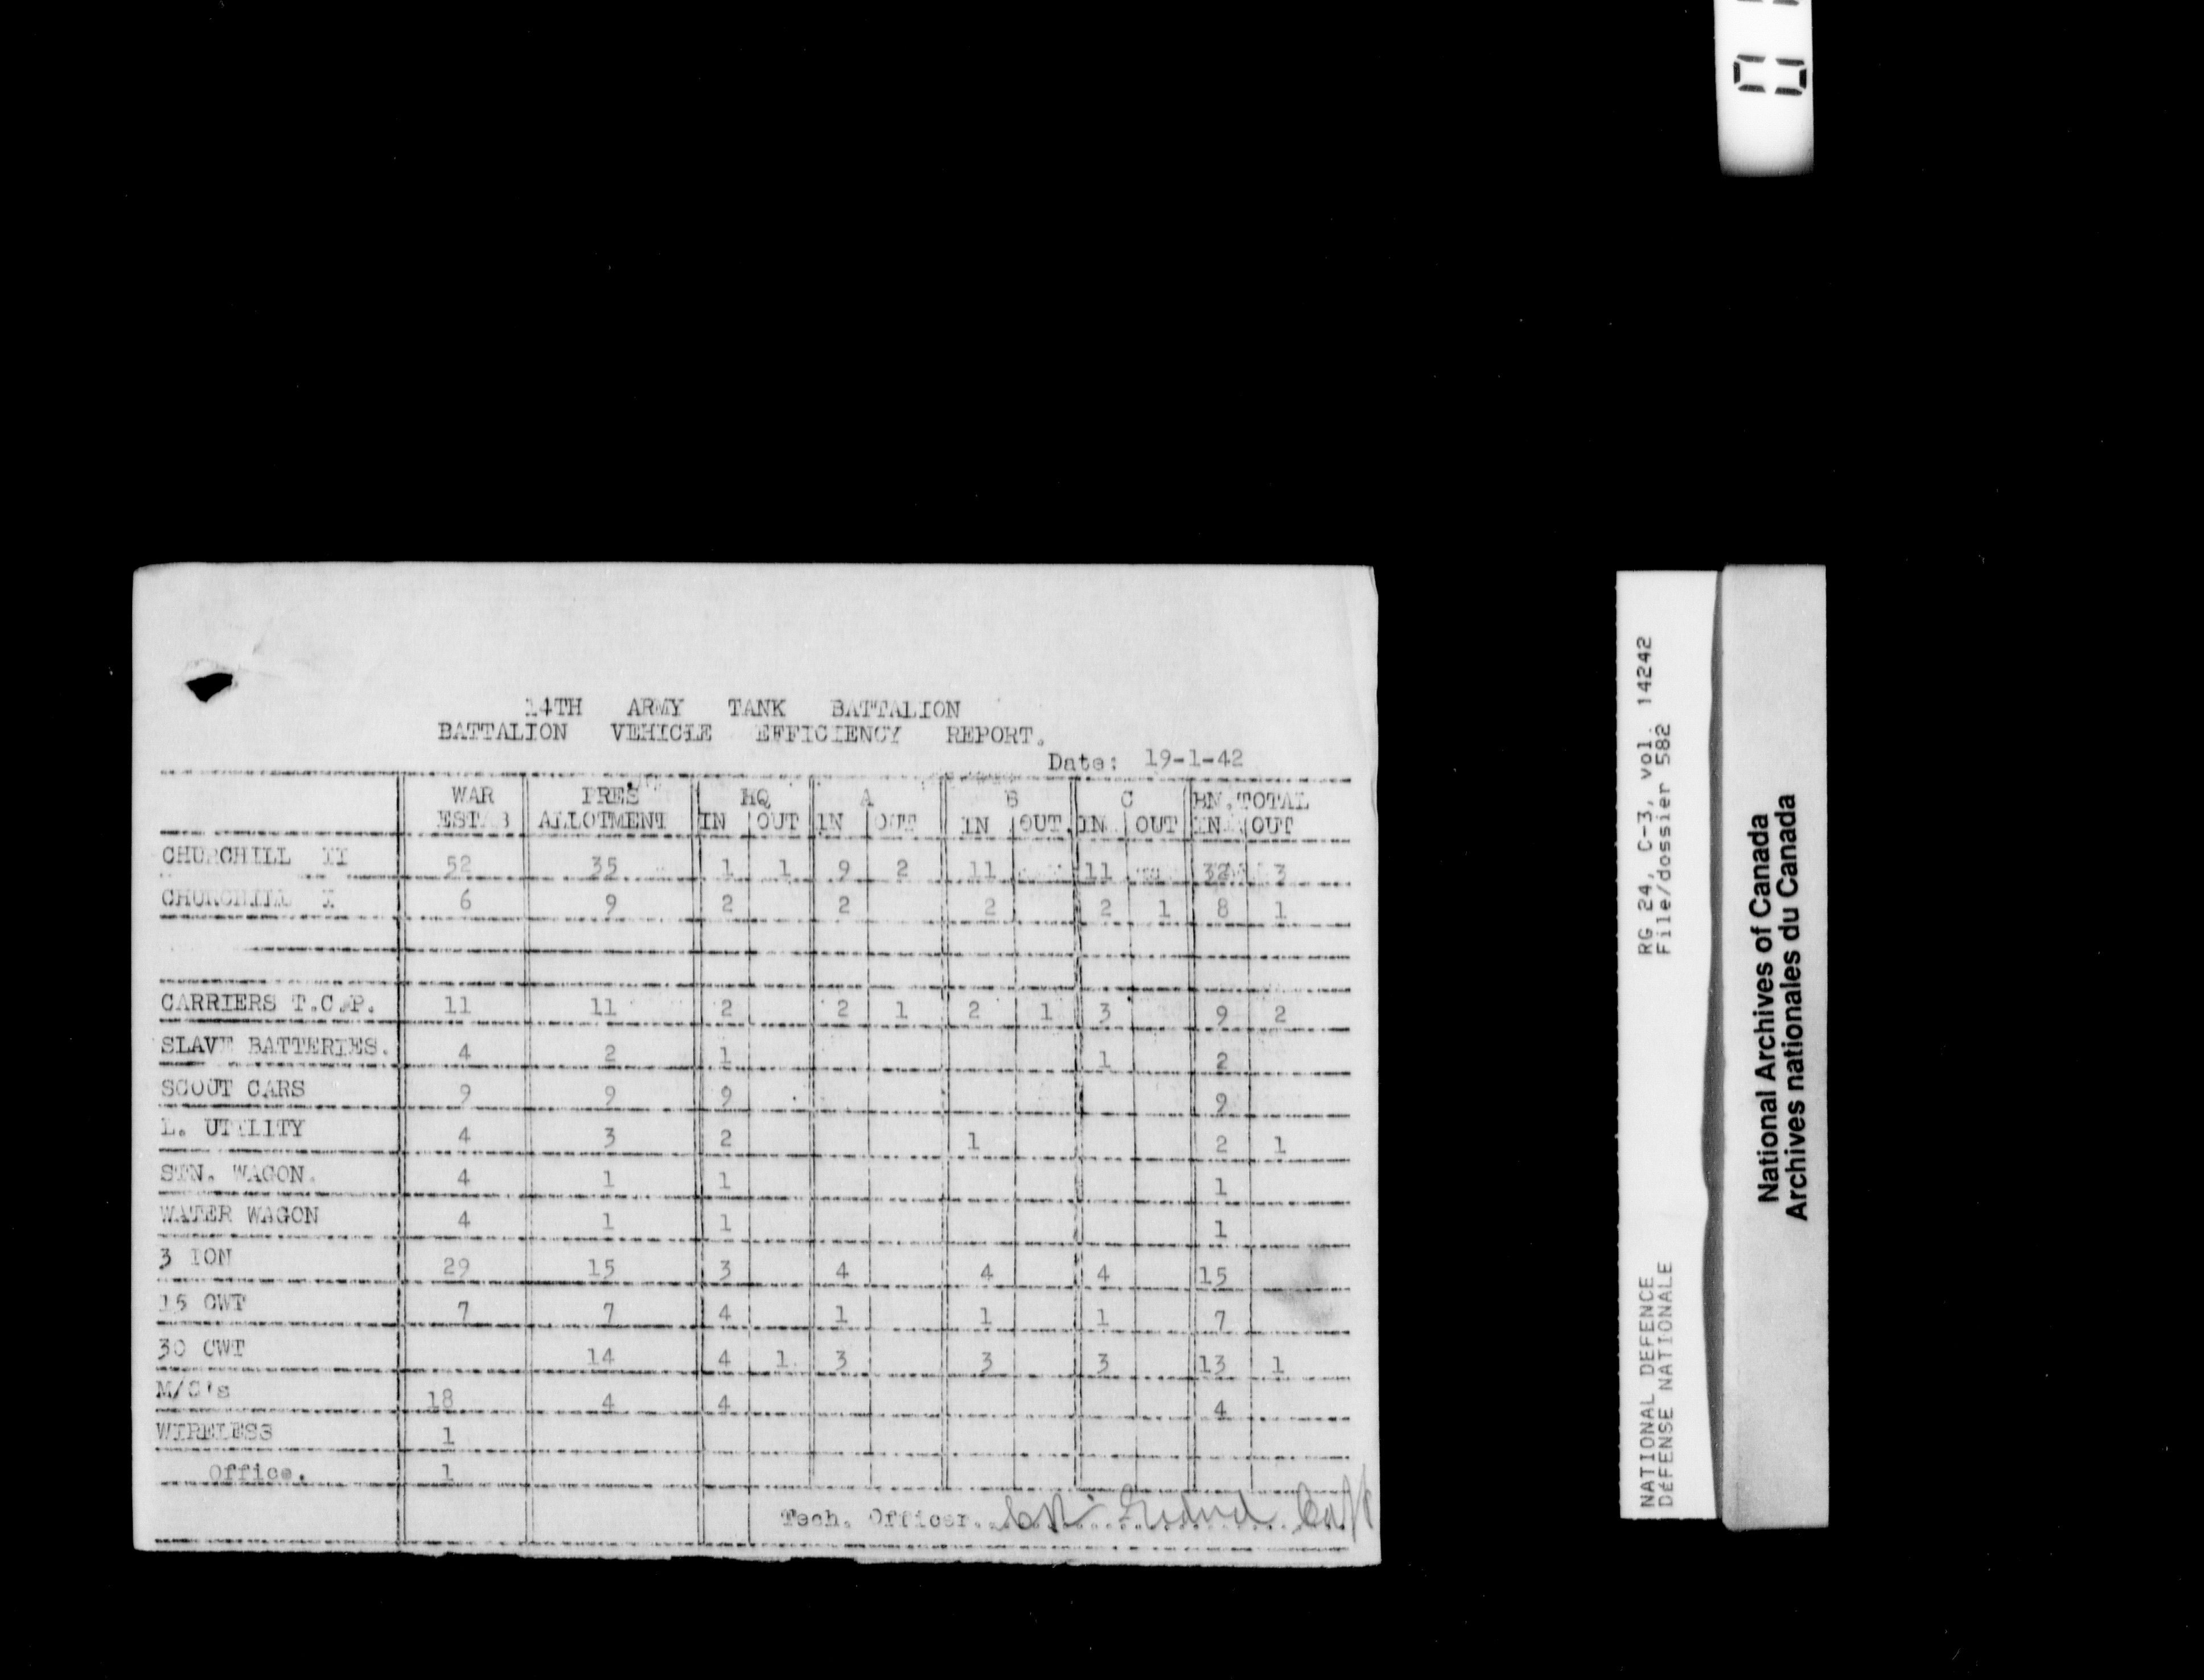 14TH ARMY TANK BATTALION
BATTALION VEHICLE EFFICIENCY REPORT.
Date: 19-1-42
WAR PRES HQ A B C BN. TOTAL
ESTAB ALLOTMENT IN OUT IN OUT IN OUT IN OUT IN OUT
CHURCHILL II 52 35 1 1 9 2 11 11 32 3
CHURCHILL I 6 9 2 2 2 2 1 8 1
CARRIERS T.C.P. 11 11 2 2 1 2 1 3 9 2
SLAVE BATTERIES. 4 2 1 1 2
SCOUT CARS 9 9 9 9
L. UTILITY 4 3 2 1 2 1
STN. WAGON. 4 1 1 1
WATER WAGON 4 1 1 1
3 TON 29 15 3 4 4 4 15
15 CWT 7 7 4 1 1 1 7
30 CWT 14 4 1 3 3 3 13 1
M/C's 18 4 4 4
WIRELESS 1
Office. 1
Tech. Officer. Capt
RG 24, C-3, vol. 14242
File/dossier 582
NATIONAL DEFENCE
DÉFENSE NATIONALE
National Archives of Canada
Archives nationales du Canada